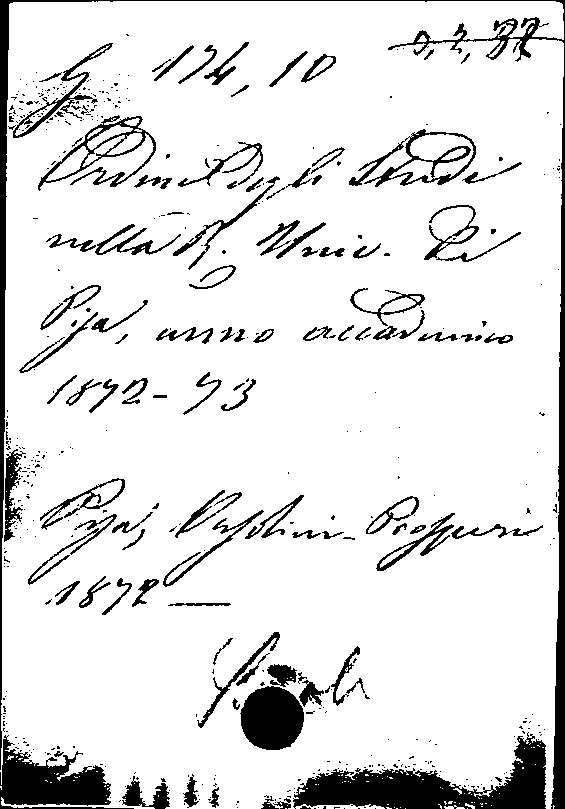 G 174, 10
2, 2, 32
Ordine degli Studi
nella R. Univ. di
Pisa, anno accademico
1872-73
Pisa, Nistri-Prosperi
1872 —